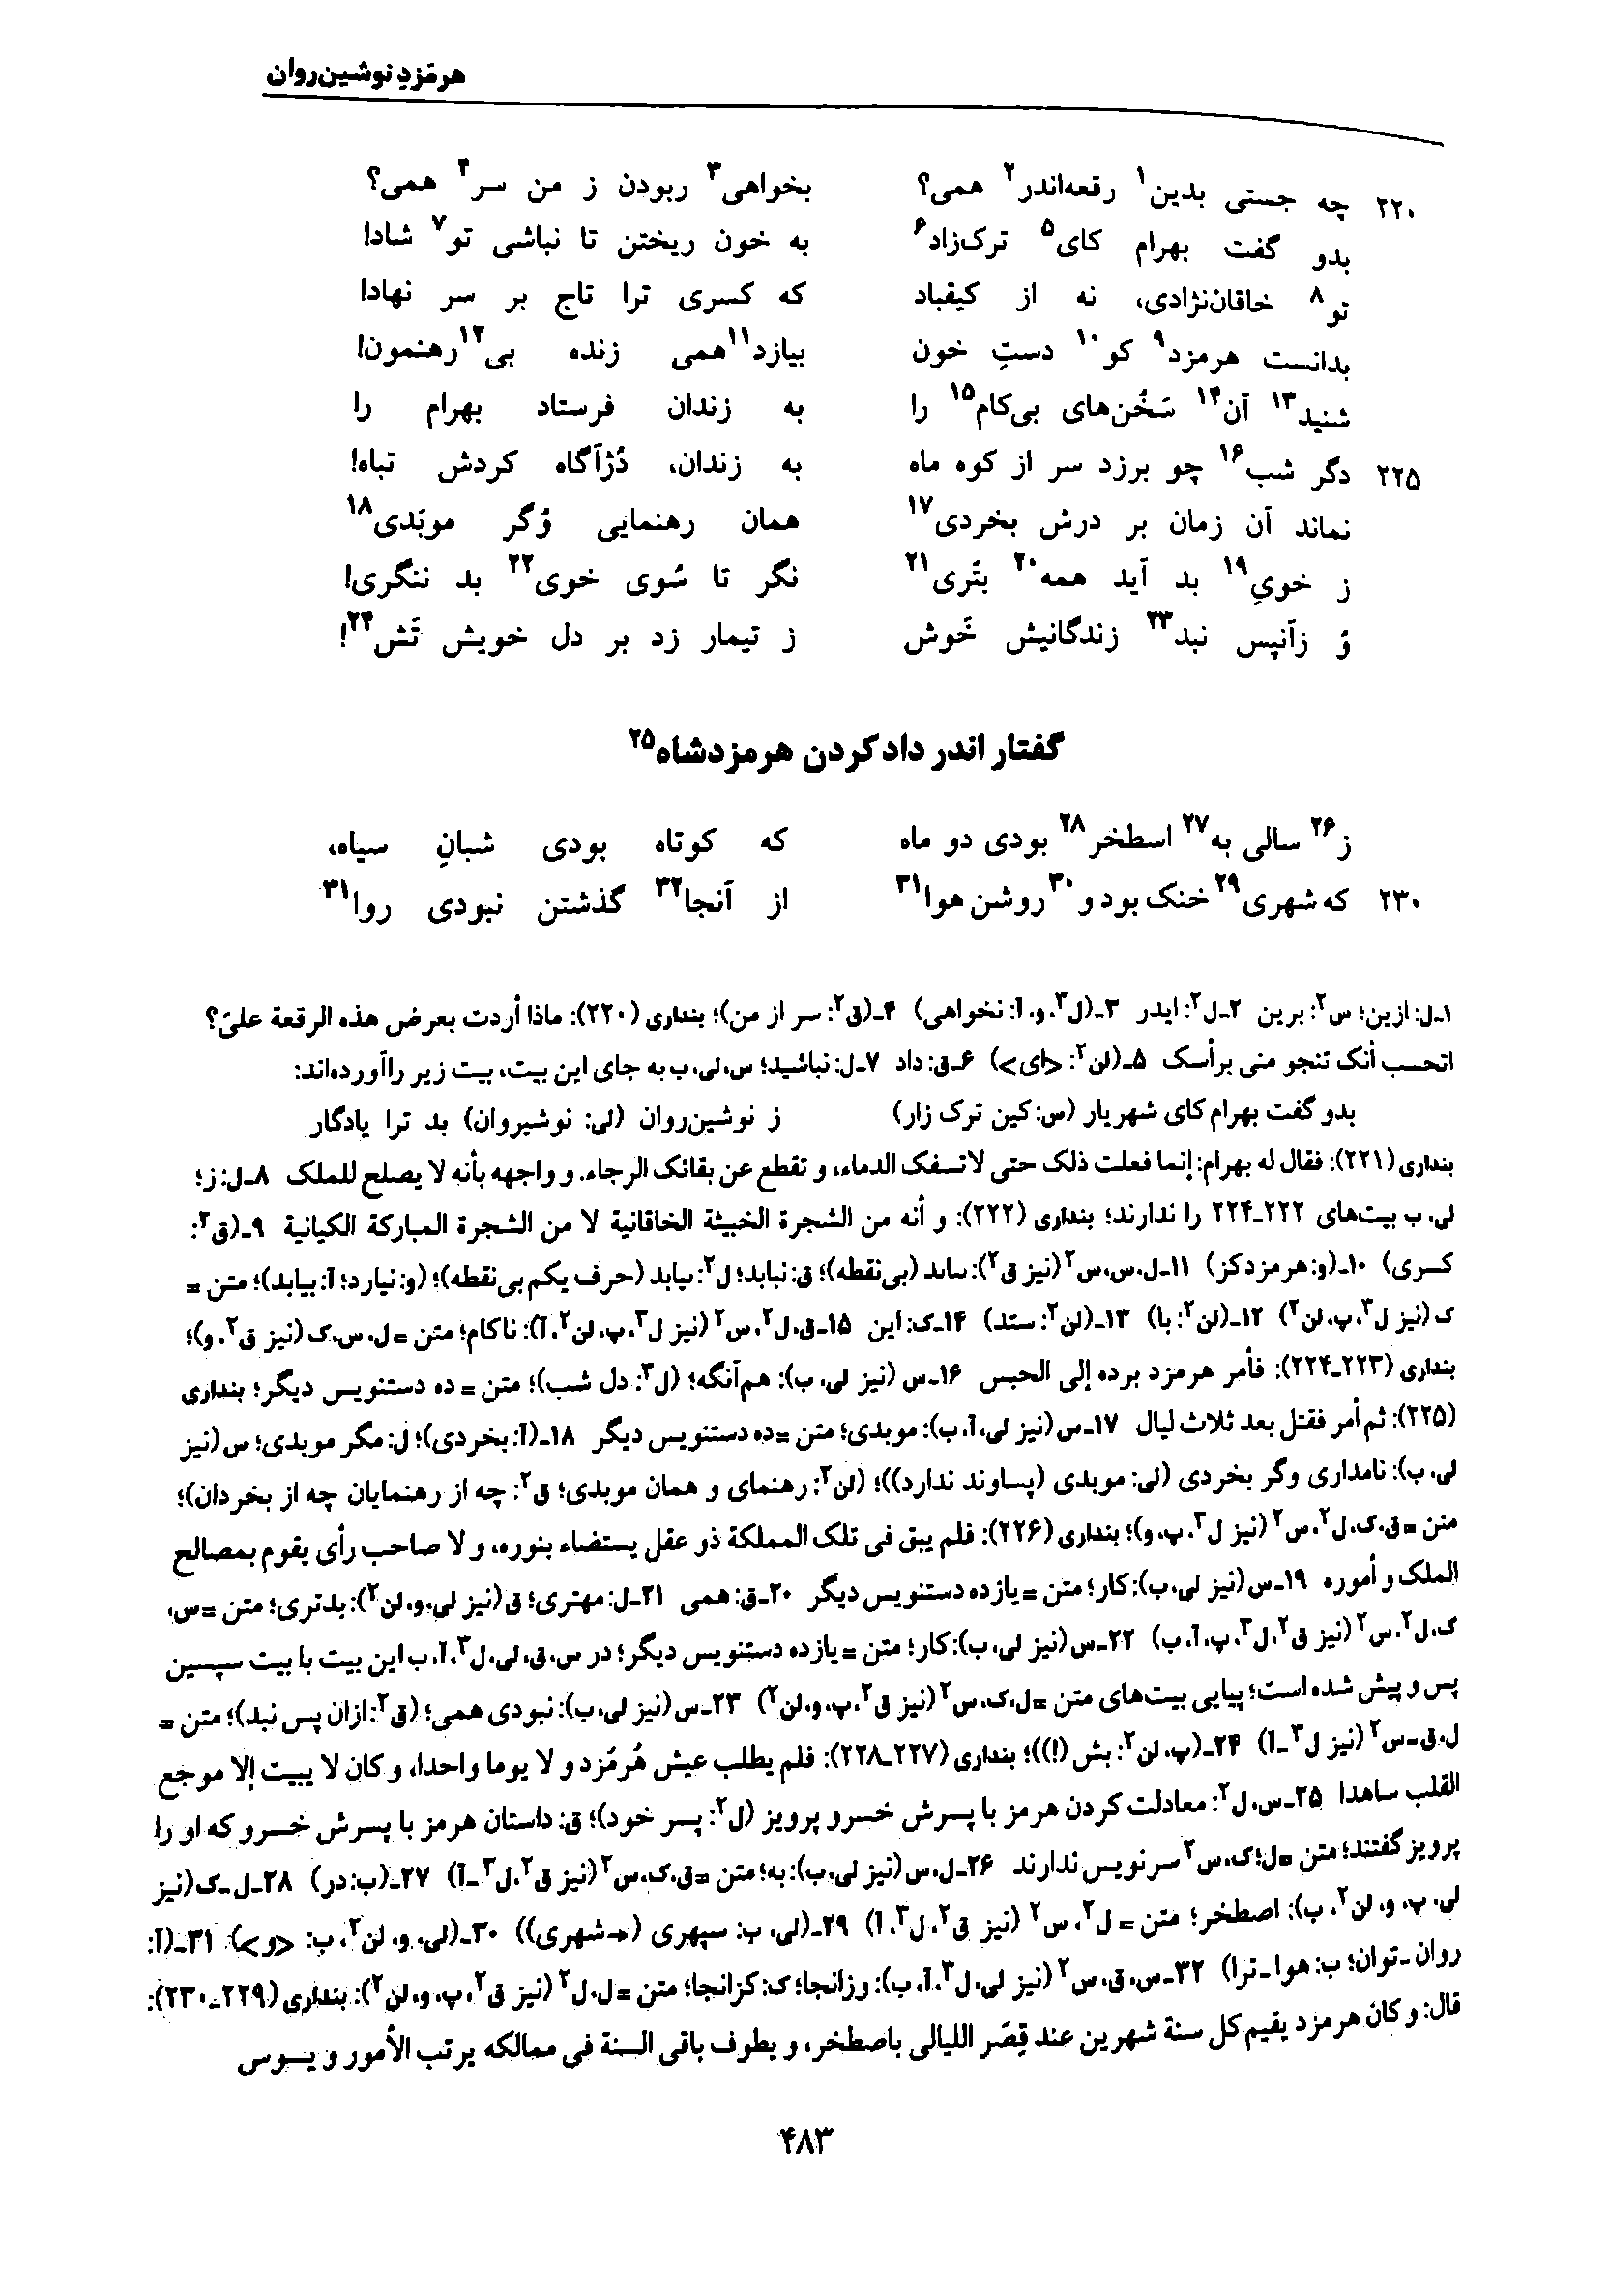 هرمَزدِ نوشین‌روان
۲۲۰ چه جستی بدین۱ رقعه‌اندر۲ همی؟ بخواهی۳ ربودن ز من سر۴ همی؟
بدو گفت بهرام کای۵ ترک‌زاد۶ به خون ریختن تا نباشی تو۷ شادا
تو۸ خاقان‌نژادی، نه از کیقباد که کسری ترا تاج بر سر نهادا
بدانست هرمزد۹ کو۱۰ دستِ خون بیازد۱۱ همی زنده بی۱۲ رهنمون!
شنید۱۳ آن۱۴ سَخُن‌های بی‌کام۱۵ را به زندان فرستاد بهرام را
۲۲۵ دگر شب۱۶ چو برزد سر از کوه ماه به زندان، دُژآگاه کردش تباه!
نماند آن زمان بر درش بخردی۱۷ همان رهنمایی وُگر موبَدی۱۸
ز خویِ۱۹ بد آید همه۲۰ بتَری۲۱ نگر تا سُوی خوی۲۲ بد ننگری!
وُ زآنپس نبد۲۳ زندگانیش خَوش ز تیمار زد بر دل خویش تَش۲۴!
گفتار اندر داد کردن هرمزدشاه۲۵
ز۲۶ سالی به۲۷ اسطخر۲۸ بودی دو ماه که کوتاه بودی شبانِ سیاه،
۲۳۰ که شهری۲۹ خنک بود و۳۰ روشن هوا۳۱ از آنجا۳۲ گذشتن نبودی روا۳۱
۱ـ ل: ازین؛ س۲: برین ۲ـ ل۲: ایدر ۳ـ (ل۳، و، آ: نخواهی) ۴ـ (ق۲: سر از من)؛ بنداری (۲۲۰): ماذا أردت بعرض هذه الرقعة علیّ؟
اتحسب أنک تنجو منی برأسک ۵ـ (لن۲: <ای>) ۶ـ ق: داد ۷ـ ل: نباشید؛ س، لی، ب به جای این بیت، بیت زیر را آورده‌اند:
بدو گفت بهرام کای شهریار (س: کین ترک زار) ز نوشین‌روان (لی: نوشیروان) بد ترا یادگار
بنداری (۲۲۱): فقال له بهرام: إنما فعلت ذلک حتی لاتسفک الدماء، و تقطع عن بقائک الرجاء. و واجهه بأنه لا یصلح للملک ۸ـ ل: ز؛
لی، ب بیت‌های ۲۲۲ـ۲۲۴ را ندارند؛ بنداری (۲۲۲): و أنه من الشجرة الخبیثة الخاقانیة لا من الشجرة المبارکة الکیانیة ۹ـ (ق۲:
کسری) ۱۰ـ (و: هرمزد کز) ۱۱ـ ل، س، س۲ (نیز ق۲): ساند (بی‌نقطه)؛ ق: نیابد؛ ل۲: بیابد (حرف یکم بی‌نقطه)؛ (و: نیارد؛ آ: بیابد)؛ متن =
ک (نیز ل۳، پ، لن۲) ۱۲ـ (لن۲: با) ۱۳ـ (لن۲: ستد) ۱۴ـ ک: این ۱۵ـ ق، ل۲، س۲ (نیز ل۳، پ، لن۲، آ): ناکام؛ متن = ل، س، ک (نیز ق۲، و)؛
بنداری (۲۲۳ـ۲۲۴): فأمر هرمزد برده إلی الحبس ۱۶ـ س (نیز لی، ب): هم‌آنگه؛ (ل۳: دل شب)؛ متن = ده دستنویس دیگر؛ بنداری
(۲۲۵): ثم أمر فقتل بعد ثلاث لیال ۱۷ـ س (نیز لی، آ، ب): موبدی؛ متن = ده دستنویس دیگر ۱۸ـ (آ: بخردی)؛ ل: مگر موبدی؛ س (نیز
لی، ب): نامداری وگر بخردی (لی: موبدی (پساوند ندارد))؛ (لن۲: رهنمای و همان موبدی؛ ق۲: چه از رهنمایان چه از بخردان)؛
متن = ق، ک، ل۲، س۲ (نیز ل۳، پ، و)؛ بنداری (۲۲۶): فلم یبق فی تلک المملکة ذو عقل یستضاء بنوره، و لا صاحب رأی یقوم بمصالح
الملک و أموره ۱۹ـ س (نیز لی، ب): کار؛ متن = یازده دستنویس دیگر ۲۰ـ ق: همی ۲۱ـ ل: مهتری؛ ق (نیز لی، و، لن۲): بدتری؛ متن = س،
ک، ل۲، س۲ (نیز ق۲، ل۳، پ، آ، ب) ۲۲ـ س (نیز لی، ب): کار؛ متن = یازده دستنویس دیگر؛ در س، ق، لی، ل۳، آ، ب این بیت با بیت سپسین
پس و پیش شده است؛ پیاپی بیت‌های متن = ل، ک، س۲ (نیز ق۲، پ، و، لن۲) ۲۳ـ س (نیز لی، ب): نبودی همی؛ (ق۲: ازان پس نبد)؛ متن =
ل، ق ـ س۲ (نیز ل۳ ـ آ) ۲۴ـ (پ، لن۲: بش (!))؛ بنداری (۲۲۷ـ۲۲۸): فلم یطلب عیش هُرمُزد و لا یوما واحدا، و کان لا یبیت إلا موجع
القلب ساهدا ۲۵ـ س، ل۲: معادلت کردن هرمز با پسرش خسرو پرویز (ل۲: پسر خود)؛ ق: داستان هرمز با پسرش خسرو که او را
پرویز گفتند؛ متن = ل؛ ک، س۲ سرنویس ندارند ۲۶ـ ل، س (نیز لی، ب): به؛ متن = ق، ک، س۲ (نیز ق۲، ل۳ ـ آ) ۲۷ـ (ب: در) ۲۸ـ ل ـ ک (نیز
لی، پ، و، لن۲، ب): اصطخر؛ متن = ل۲، س۲ (نیز ق۲، ل۳، آ) ۲۹ـ (لی، ب: سپهری (← شهری)) ۳۰ـ (لی، و، لن۲، ب: <و>) ۳۱ـ (آ:
روان ـ توان؛ ب: هوا ـ ترا) ۳۲ـ س، ق، س۲ (نیز لی، ل۳، آ، ب): وزانجا؛ ک: کزانجا؛ متن = ل، ل۲ (نیز ق۲، پ، و، لن۲): بنداری (۲۲۹ـ۲۳۰):
قال: و کان هرمزد یقیم کل سنة شهرین عند قِصَر اللیالی باصطخر، و یطوف باقی السنة فی ممالکه یرتب الأمور و یسوس
۴۸۳